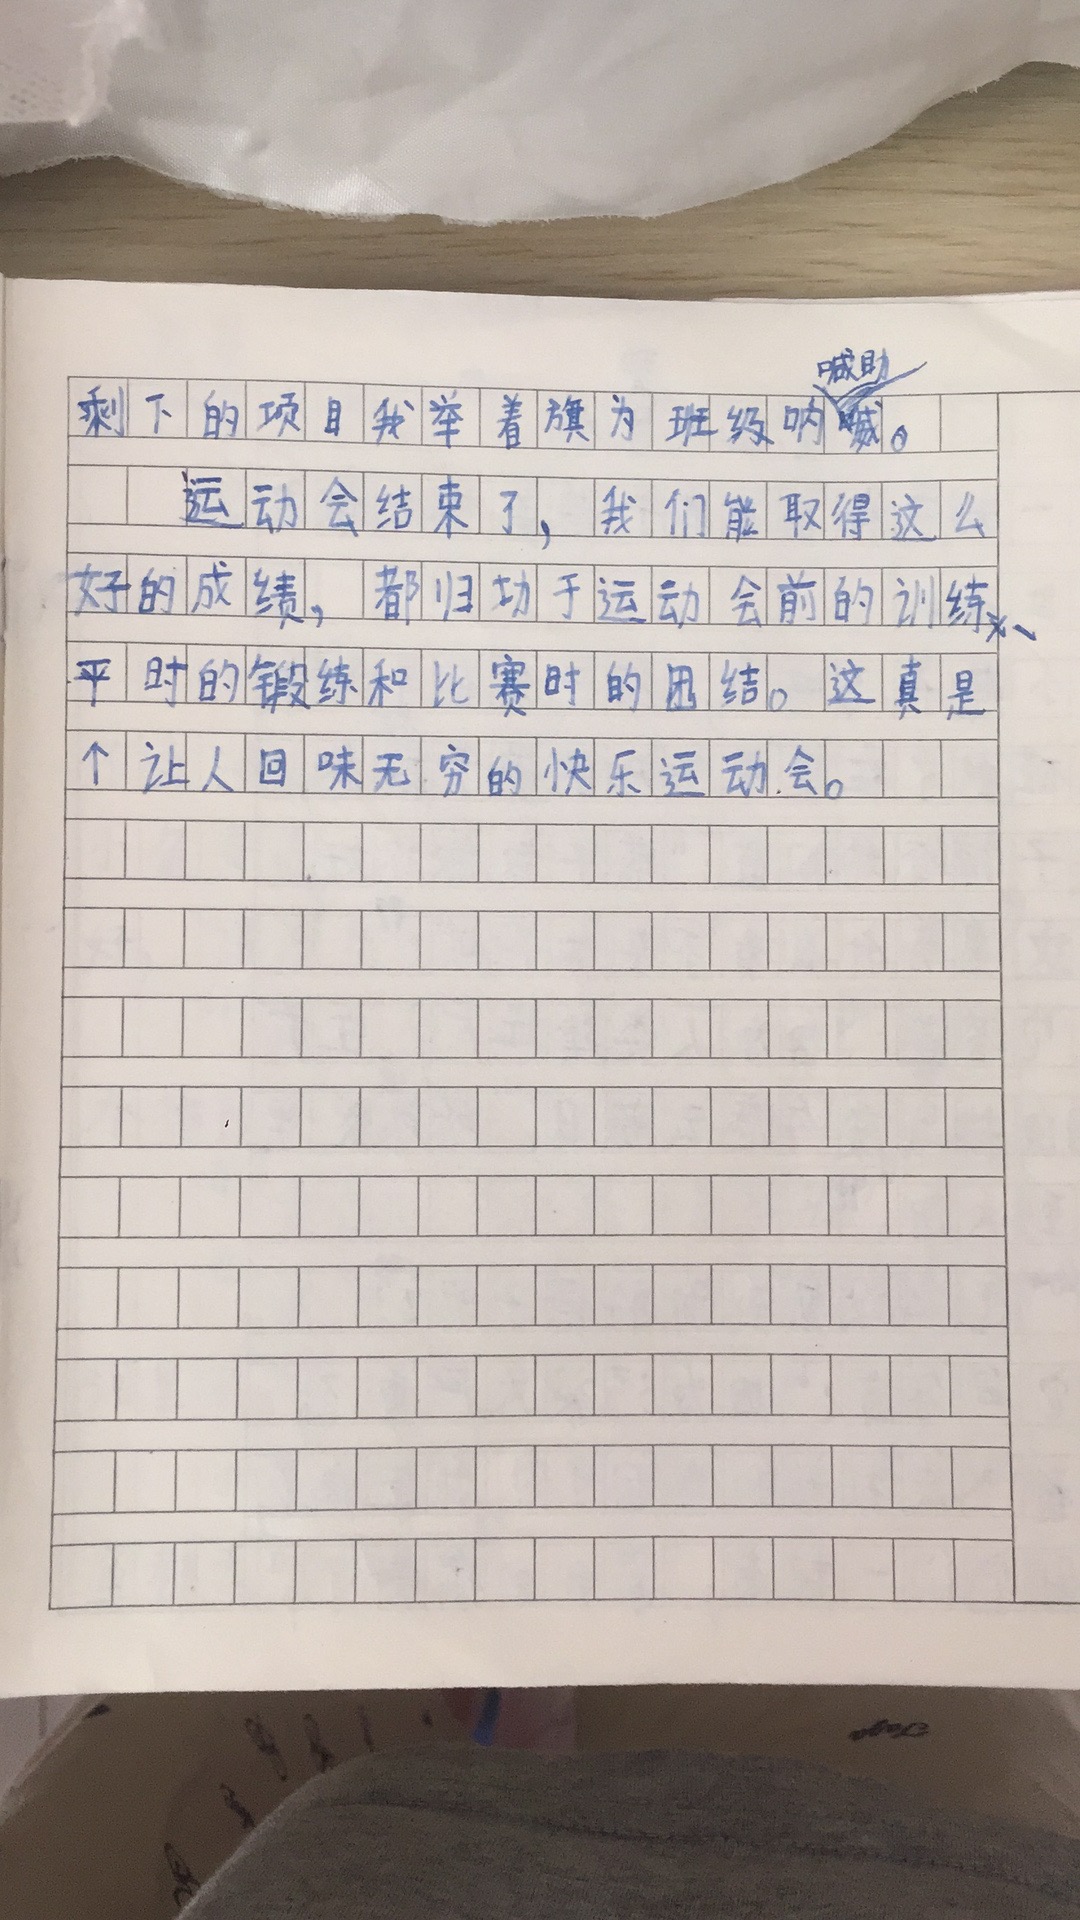 喊助
剩下的项目我举着旗为班级呐喊。
运动会结束了,我们能取得这么
好的成绩,都归功于运动会前的训练、
平时的锻练和比赛时的团结。这真是
个让人回味无穷的快乐运动会。